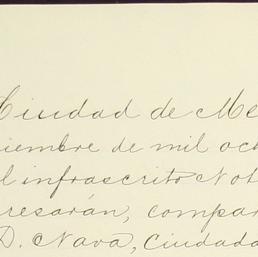 Ciudad de Me
iembre de mil och
l infrascrito Not
resarán, compar
D. Nava, Ciudada